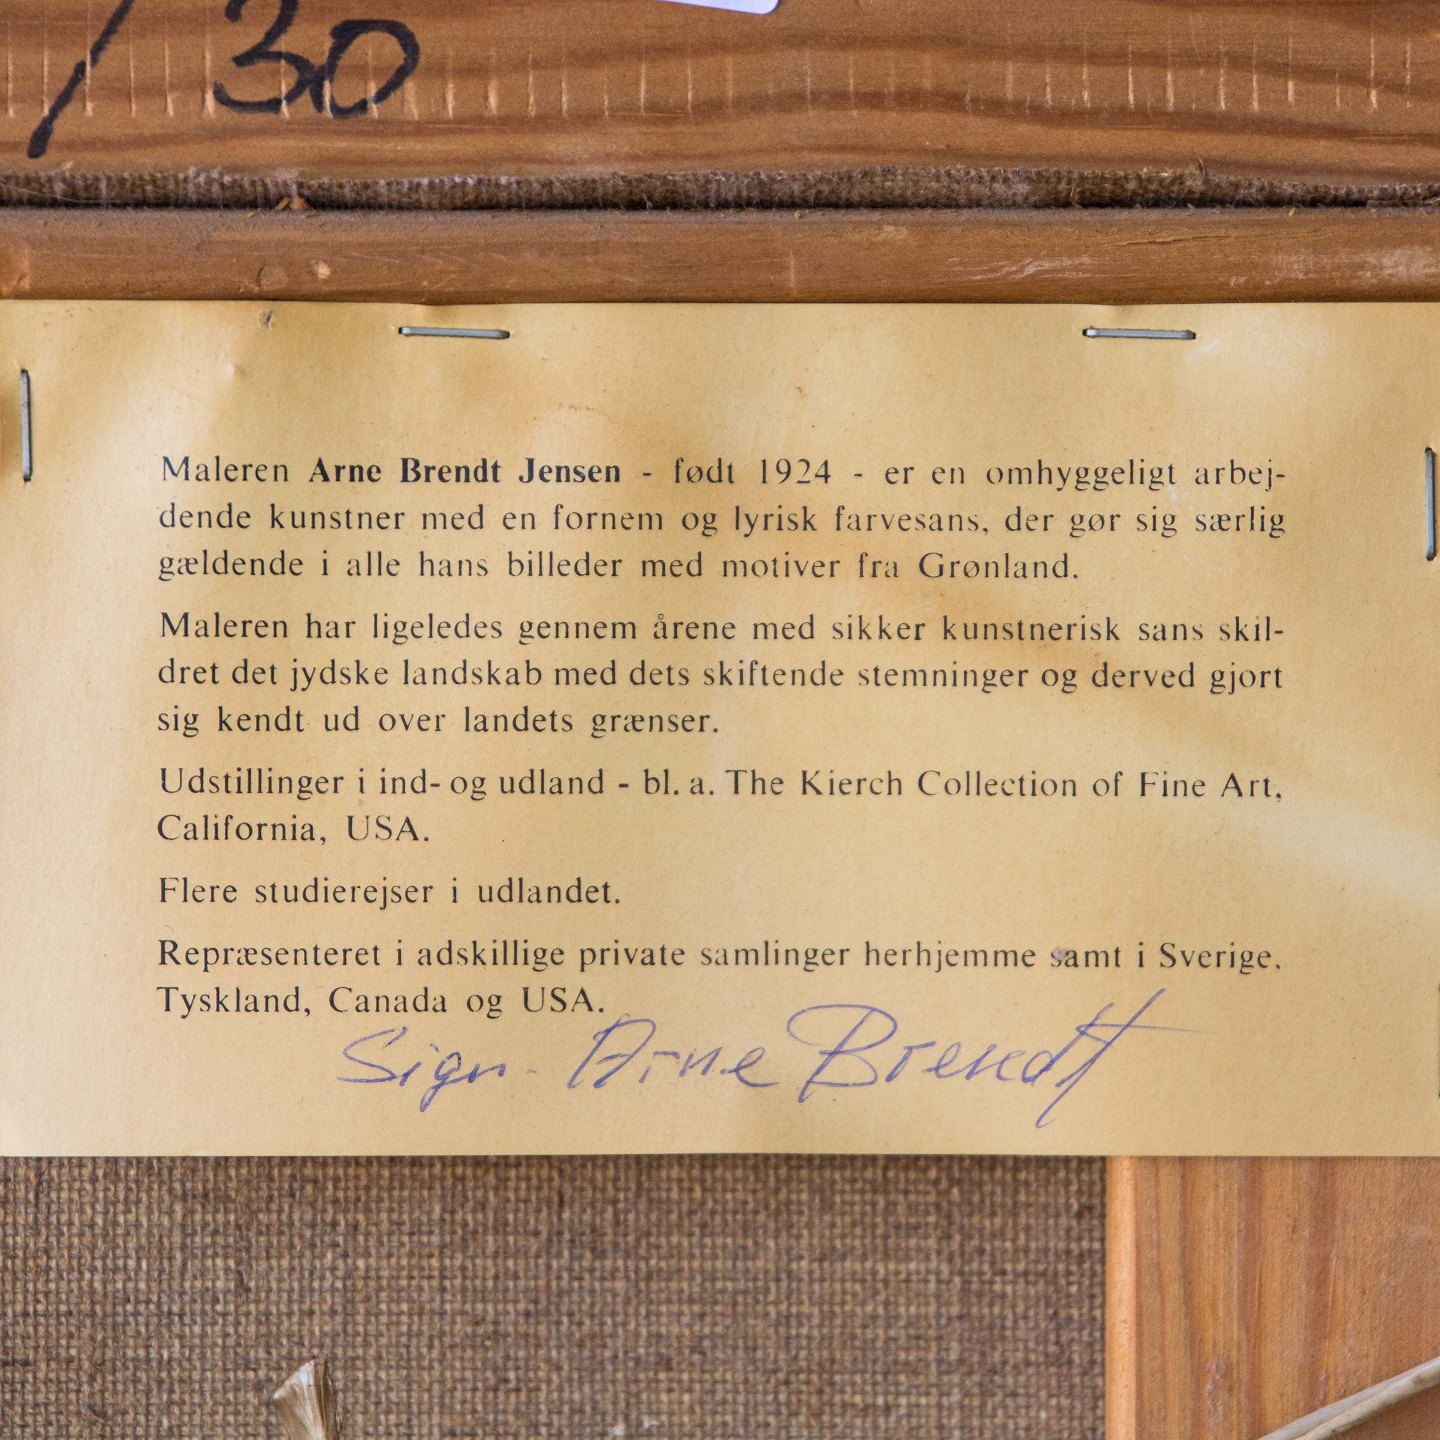 /30
Maleren Arne Brendt Jensen - født 1924 - er en omhyggeligt arbej-
dende kunstner med en fornem og lyrisk farvesans, der gør sig særlig
gældende i alle hans billeder med motiver fra Grønland.
Maleren har ligeledes gennem årene med sikker kunstnerisk sans skil-
dret det jydske landskab med dets skiftende stemninger og derved gjort
sig kendt ud over landets grænser.
Udstillinger i ind- og udland - bl. a. The Kierch Collection of Fine Art,
California, USA.
Flere studierejser i udlandet.
Repræsenteret i adskillige private samlinger herhjemme samt i Sverige,
Tyskland, Canada og USA.
Sign. Arne Brendt